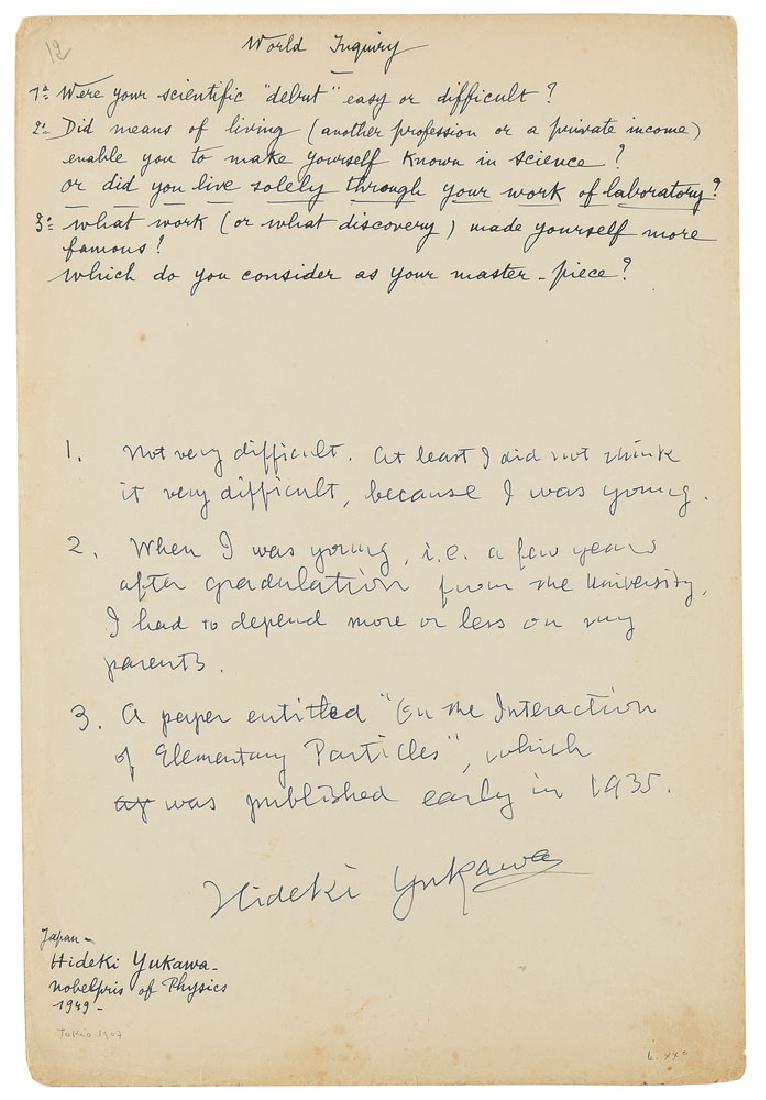 12
World Inquiry
1º Were your scientific "debut" easy or difficult?
2º Did means of living (another profession or a private income)
enable you to make yourself known in science?
or did you live solely through your work of laboratory?
3º what work (or what discovery) made yourself more
famous?
which do you consider as your master-piece?
1. Not very difficult. At least I did not think
it very difficult, because I was young.
2. When I was young, i.e. a few years
after gradulation from the University,
I had to depend more or less on my
parents.
3. A paper entitled "On the Interaction
of Elementary Particles", which
was published early in 1935.
Hideki Yukawa
Japan-
Hideki Yukawa-
nobelpris of Physics
1949-
Tokio 1907